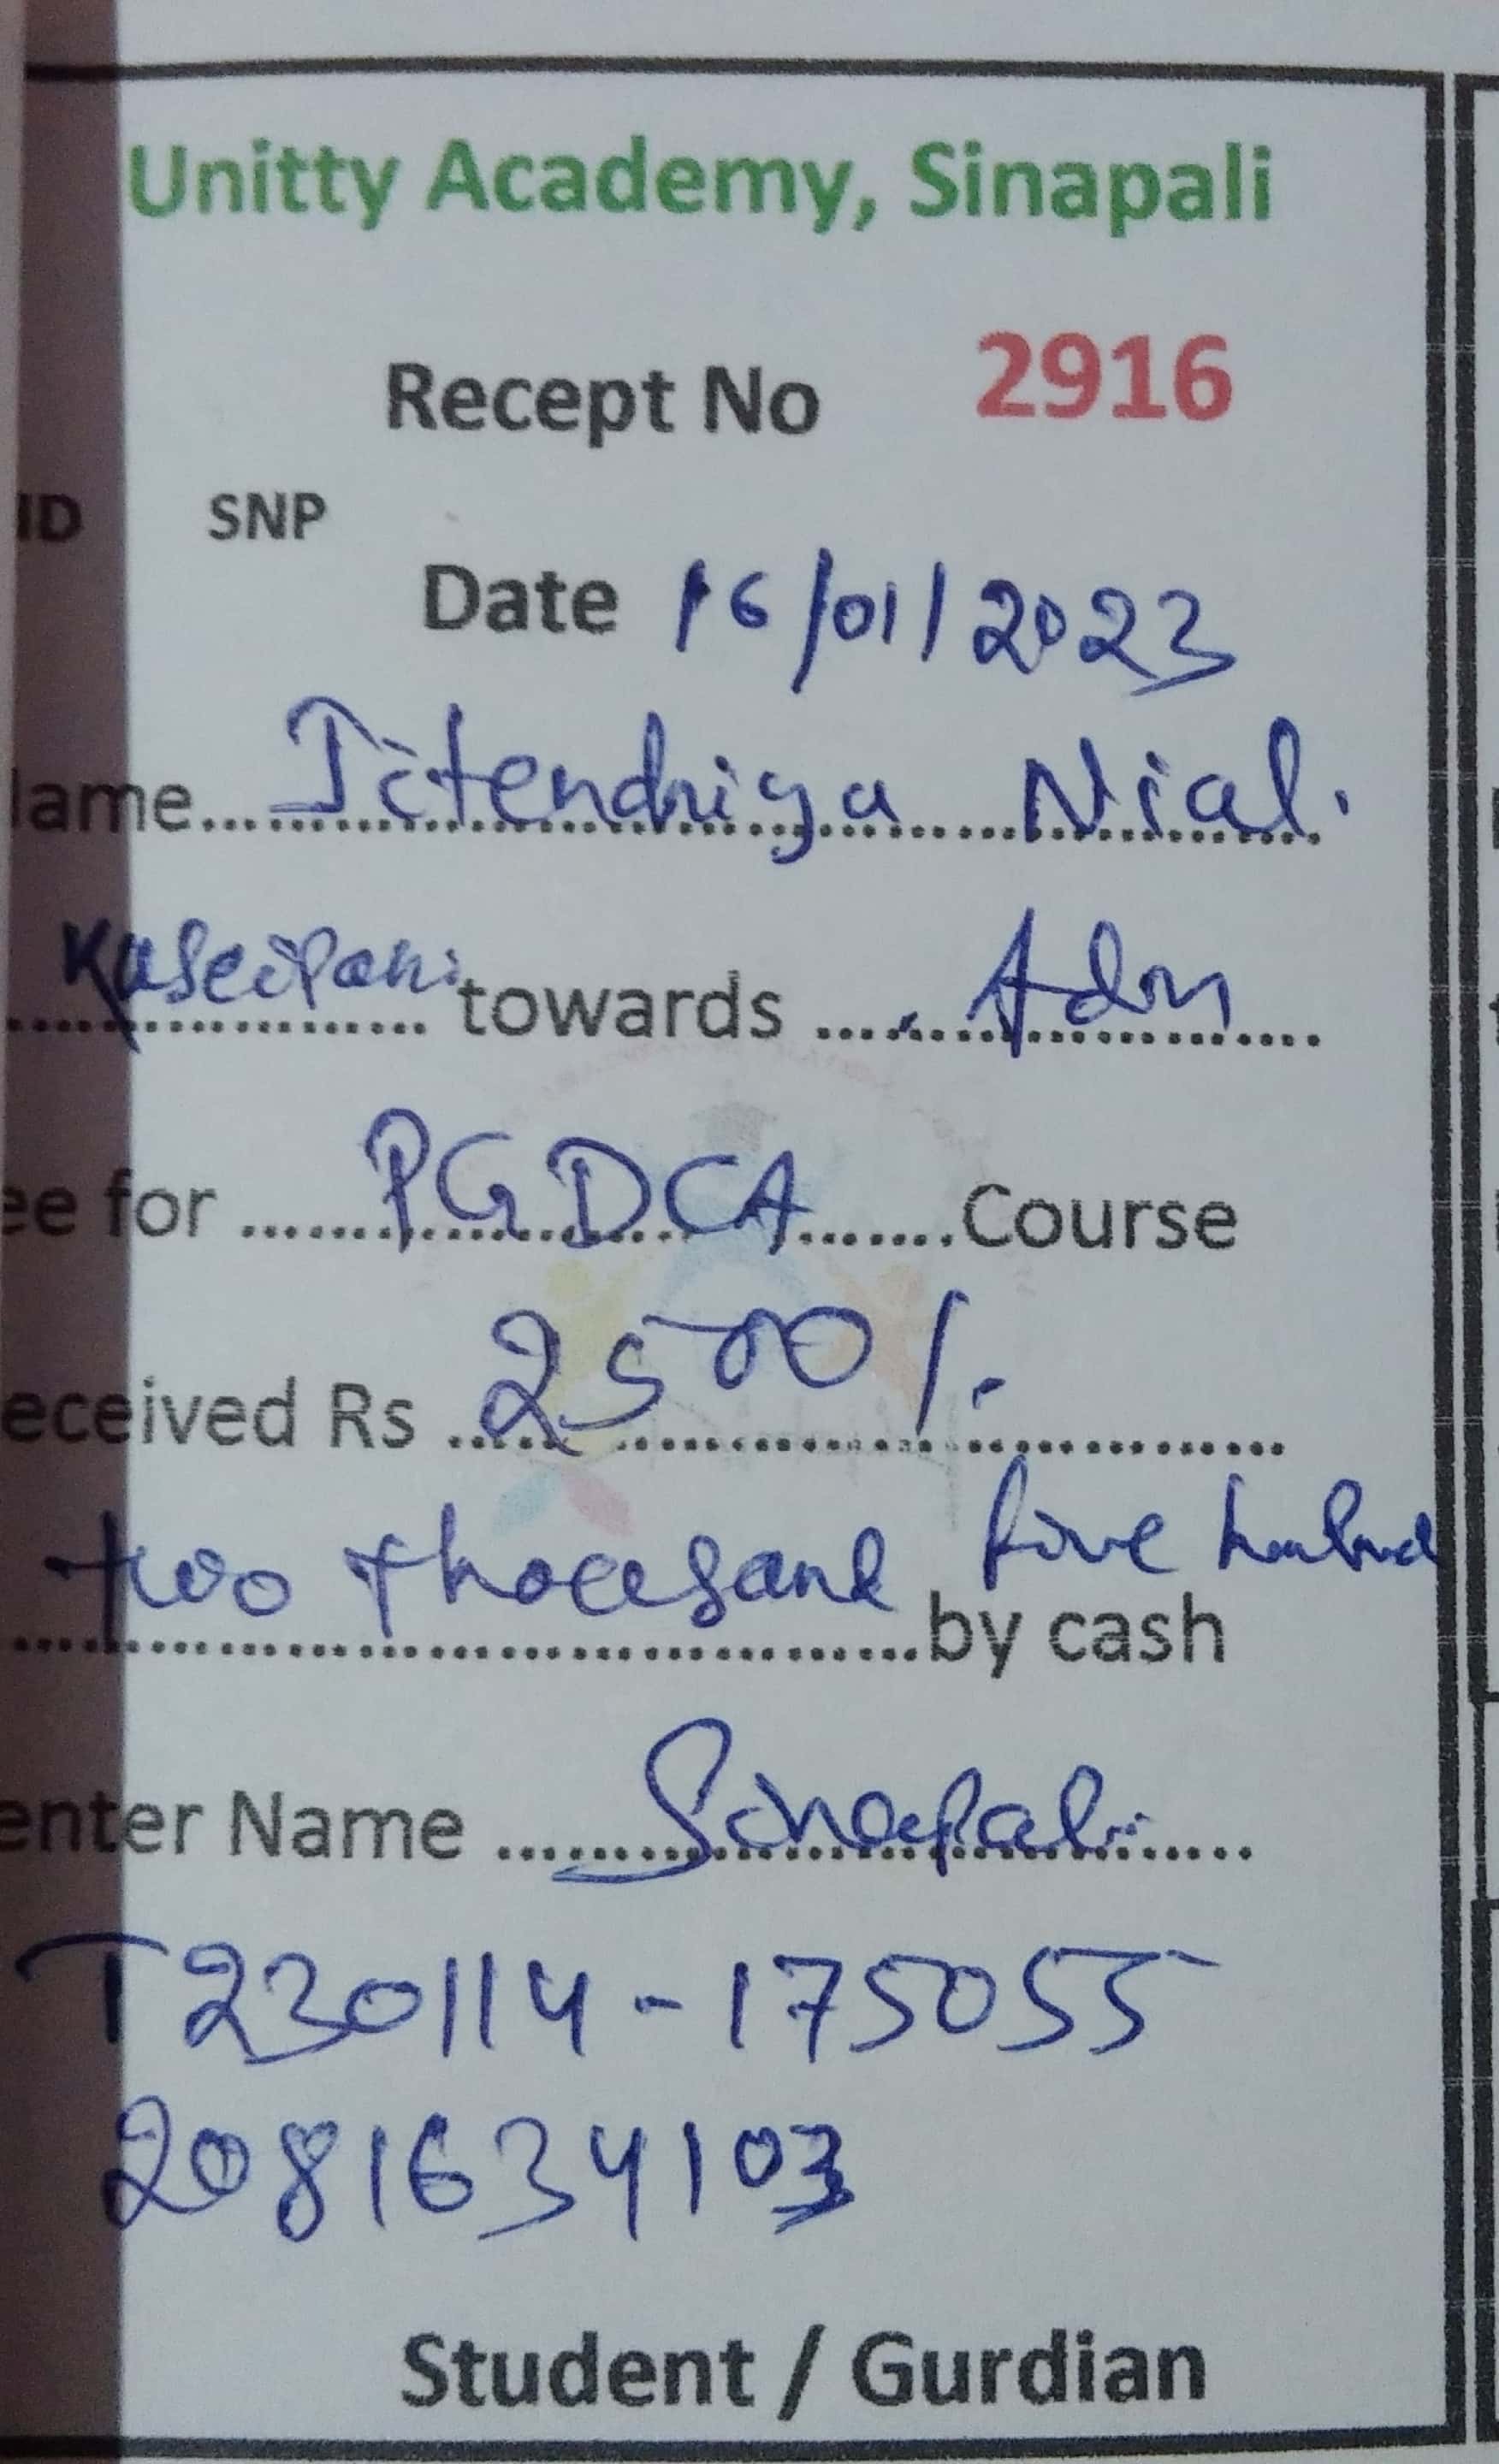 Unitty Academy, Sinapali
Recept No 2916
ID SNP
Date 16/01/2023
ame... Jitendriya Nial.
towards ..... Adm
ee for ... PGDCA ... Course
eceived Rs ... 2500/-
two thousand five hundred
by cash
enter Name ... Sinapali
T230114-175055
2081634103
Student / Gurdian